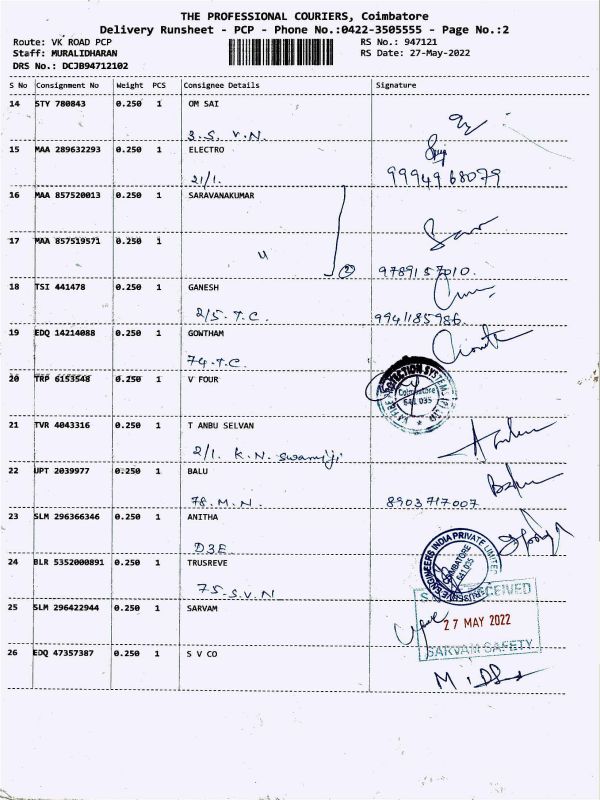 THE PROFESSIONAL COURIERS, Coimbatore
Delivery Runsheet - PCP - Phone No.:0422-3505555 - Page No.:2
Route: VK ROAD PCP RS No.: 947121
Staff: MURALIDHARAN RS Date: 27-May-2022
DRS No.: DCJB94712102
S No Consignment No Weight PCS Consignee Details Signature
14 STY 780843 0.250 1 OM SAI
3.S.V.N.
15 MAA 289632293 0.250 1 ELECTRO
21/1. 9994968079
16 MAA 857520013 0.250 1 SARAVANAKUMAR
17 MAA 857519571 0.250 1
2 9789157010.
18 TSI 441478 0.250 1 GANESH
2/5.T.C. 9941185986
19 EDQ 14214088 0.250 1 GOWTHAM
74.T.C.
20 TRP 6153548 0.250 1 V FOUR
Coimbatore
641 035
21 TVR 4043316 0.250 1 T ANBU SELVAN
2/1. K.N. Swamiji
22 UPT 2039977 0.250 1 BALU
78.M.N. 8903717007
23 SLM 296366346 0.250 1 ANITHA
D3E
24 BLR 5352000891 0.250 1 TRUSREVE
75-S.V.N
ENGINEERS INDIA PRIVATE LIMITED
COIMBATORE
641 035
25 SLM 296422944 0.250 1 SARVAM
RECEIVED
27 MAY 2022
SARVAM SAFETY
26 EDQ 47357387 0.250 1 S V CO